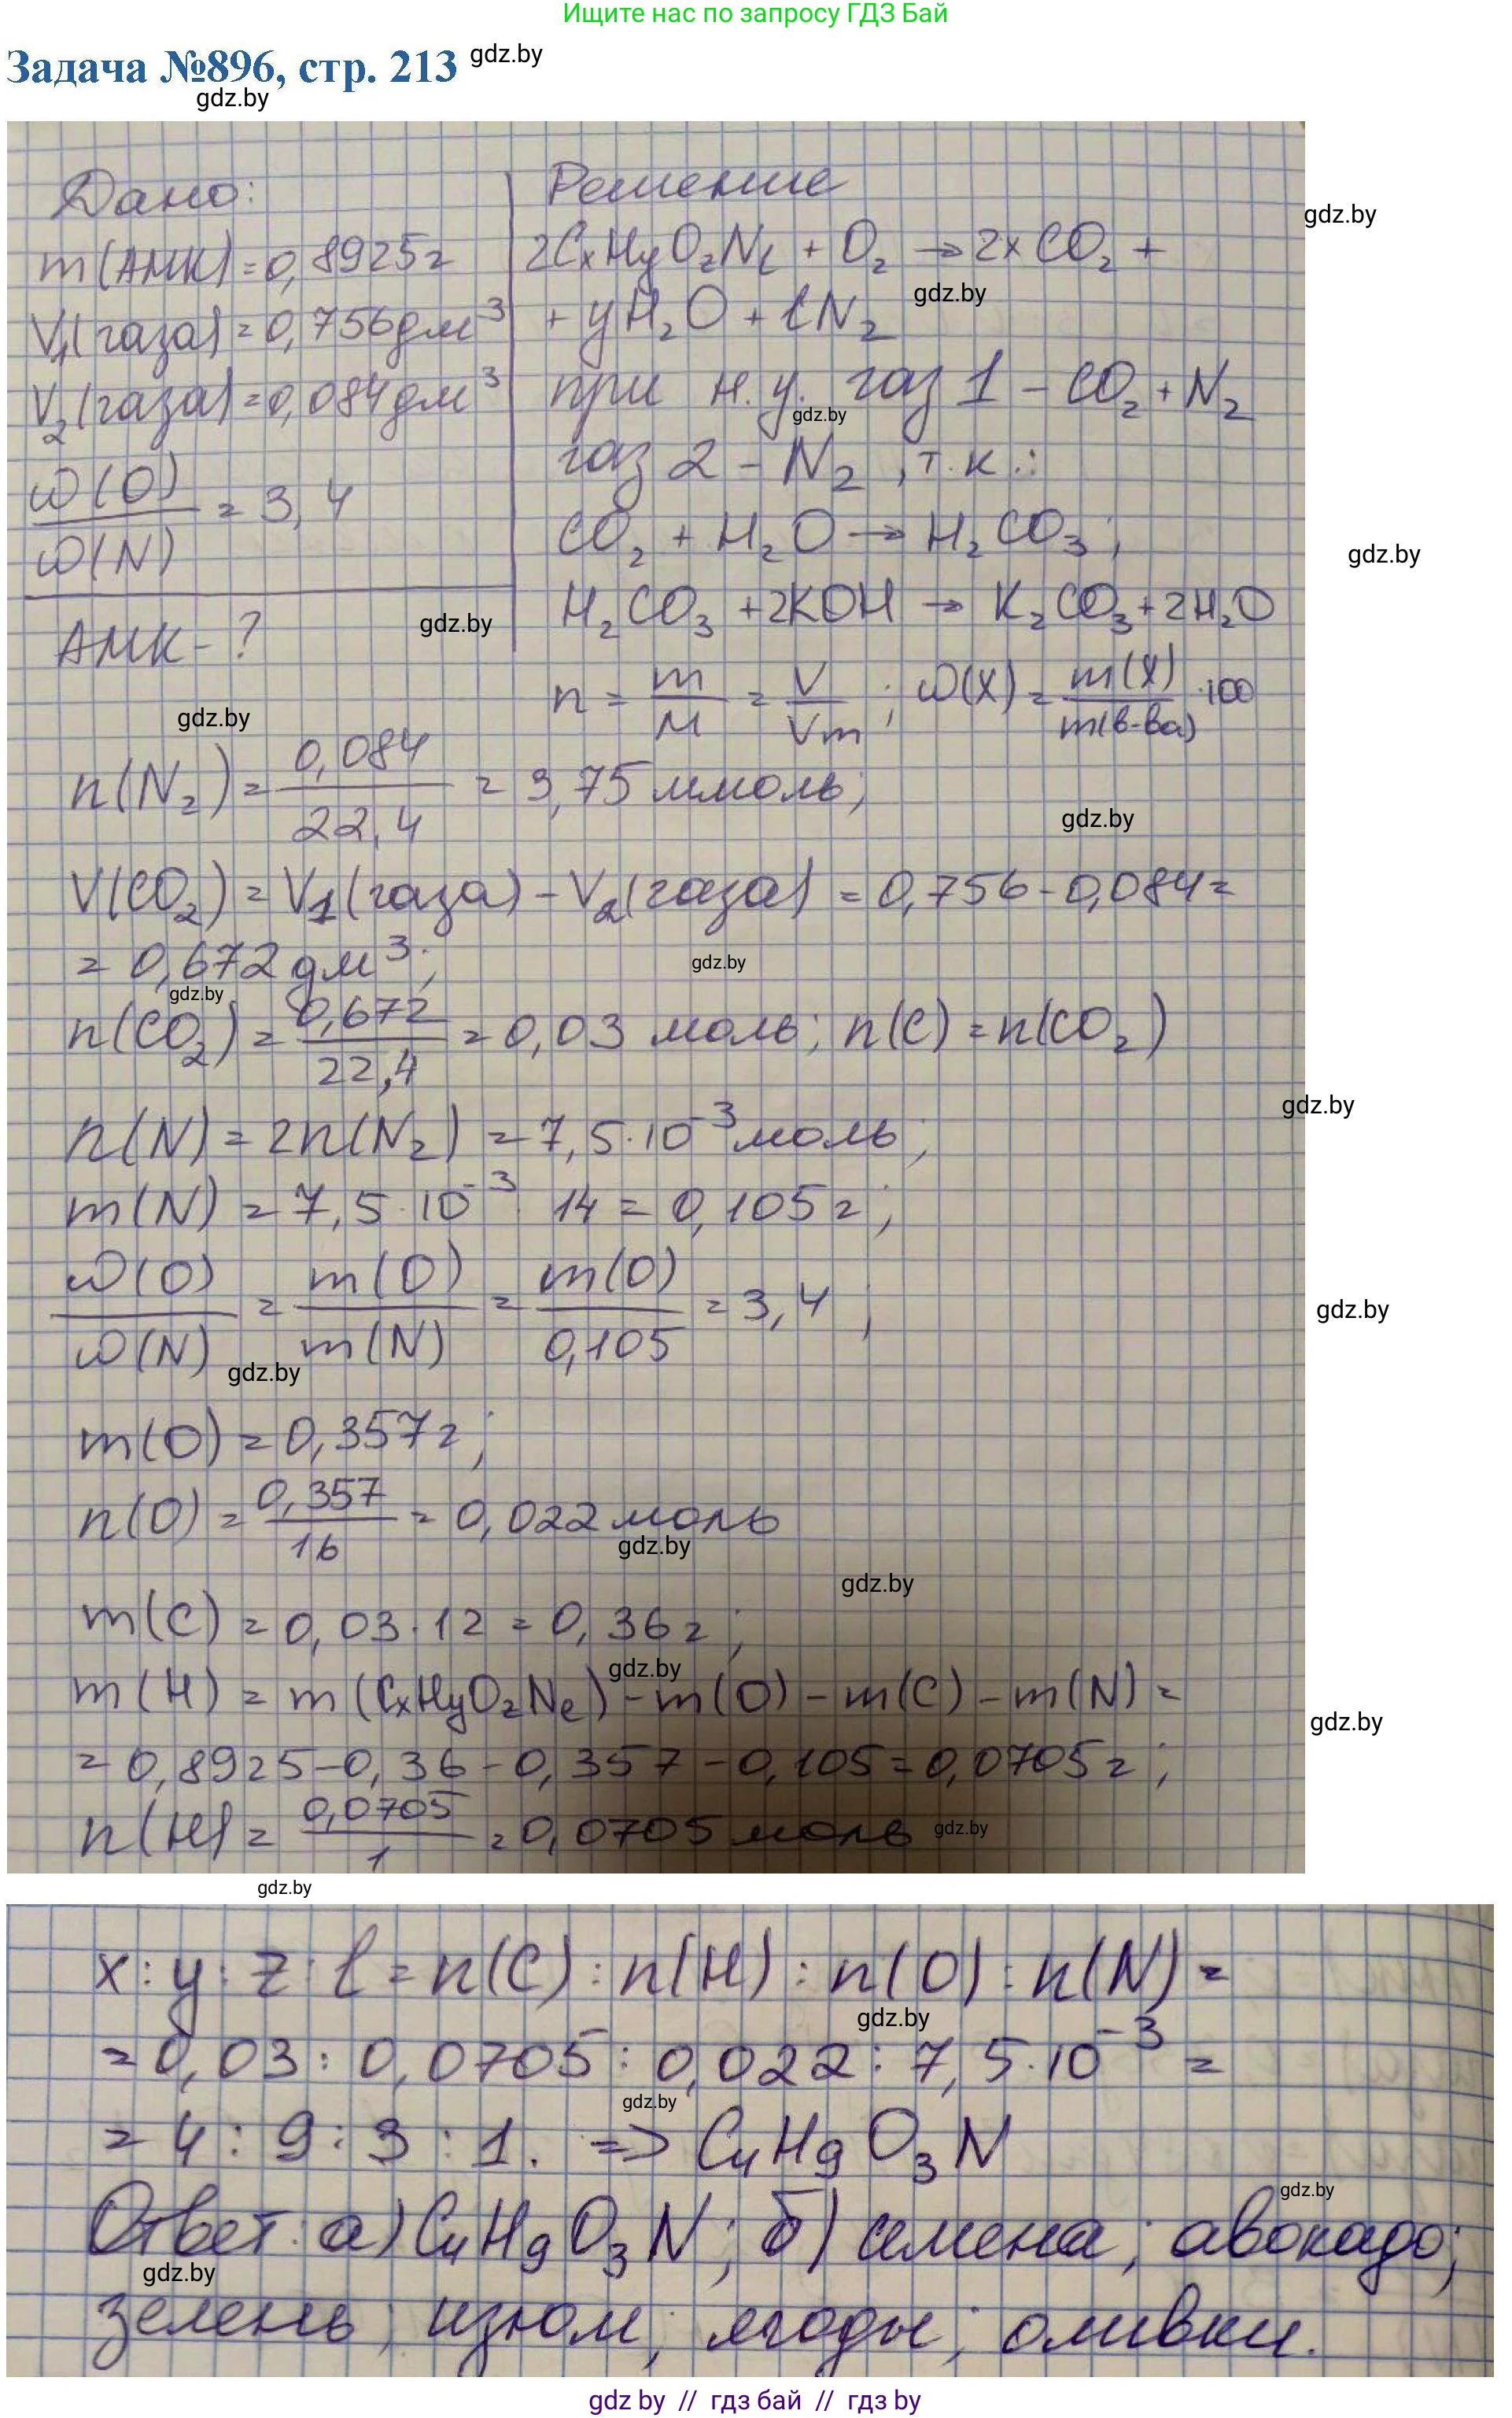 Ищите нас по запросу ГДЗ Бай
Задача №896, стр. 213
gdz.by
gdz.by
Дано:
m(АМК)=0,8925г
V₁(газа)=0,756дм³
V₂(газа)=0,084дм³
ω(O)/ω(N) = 3,4
АМК-?
Решение
gdz.by
2CₓHyO₂Nℓ + O₂ → 2xCO₂ +
gdz.by
+ yH₂O + ℓN₂
при н.у. газ 1 – CO₂ + N₂
gdz.by
газ 2 – N₂, т.к.:
CO₂ + H₂O → H₂CO₃;
gdz.by
H₂CO₃ + 2KOH → K₂CO₃ + 2H₂O
gdz.by
n = m/M = V/Vm; ω(X) = m(X)/m(в-ва) ·100
gdz.by
n(N₂) = 0,084/22,4 = 3,75 ммоль;
gdz.by
V(CO₂) = V₁(газа) – V₂(газа) = 0,756 – 0,084 =
= 0,672 дм³;
gdz.by
gdz.by
n(CO₂) = 0,672/22,4 = 0,03 моль; n(C) = n(CO₂)
gdz.by
n(N) = 2n(N₂) = 7,5·10⁻³ моль;
m(N) = 7,5·10⁻³·14 = 0,105г;
ω(O)/ω(N) = m(O)/m(N) = m(O)/0,105 = 3,4;
gdz.by
gdz.by
m(O) = 0,357г;
n(O) = 0,357/16 = 0,022 моль
gdz.by
gdz.by
m(C) = 0,03·12 = 0,36г;
gdz.by
m(H) = m(CₓHyO₂Nℓ) – m(O) – m(C) – m(N) =
gdz.by
= 0,8925 – 0,36 – 0,357 – 0,105 = 0,0705г;
n(H) = 0,0705/1 = 0,0705 моль
gdz.by
gdz.by
x : y : z : ℓ = n(C) : n(H) : n(O) : n(N) =
gdz.by
= 0,03 : 0,0705 : 0,022 : 7,5·10⁻³ =
gdz.by
= 4 : 9 : 3 : 1. => C₄H₉O₃N
gdz.by
Ответ: а) C₄H₉O₃N; б) семена; авокадо;
gdz.by
зелень; изюм; ягоды; оливки.
gdz by // гдз бай // гдз by